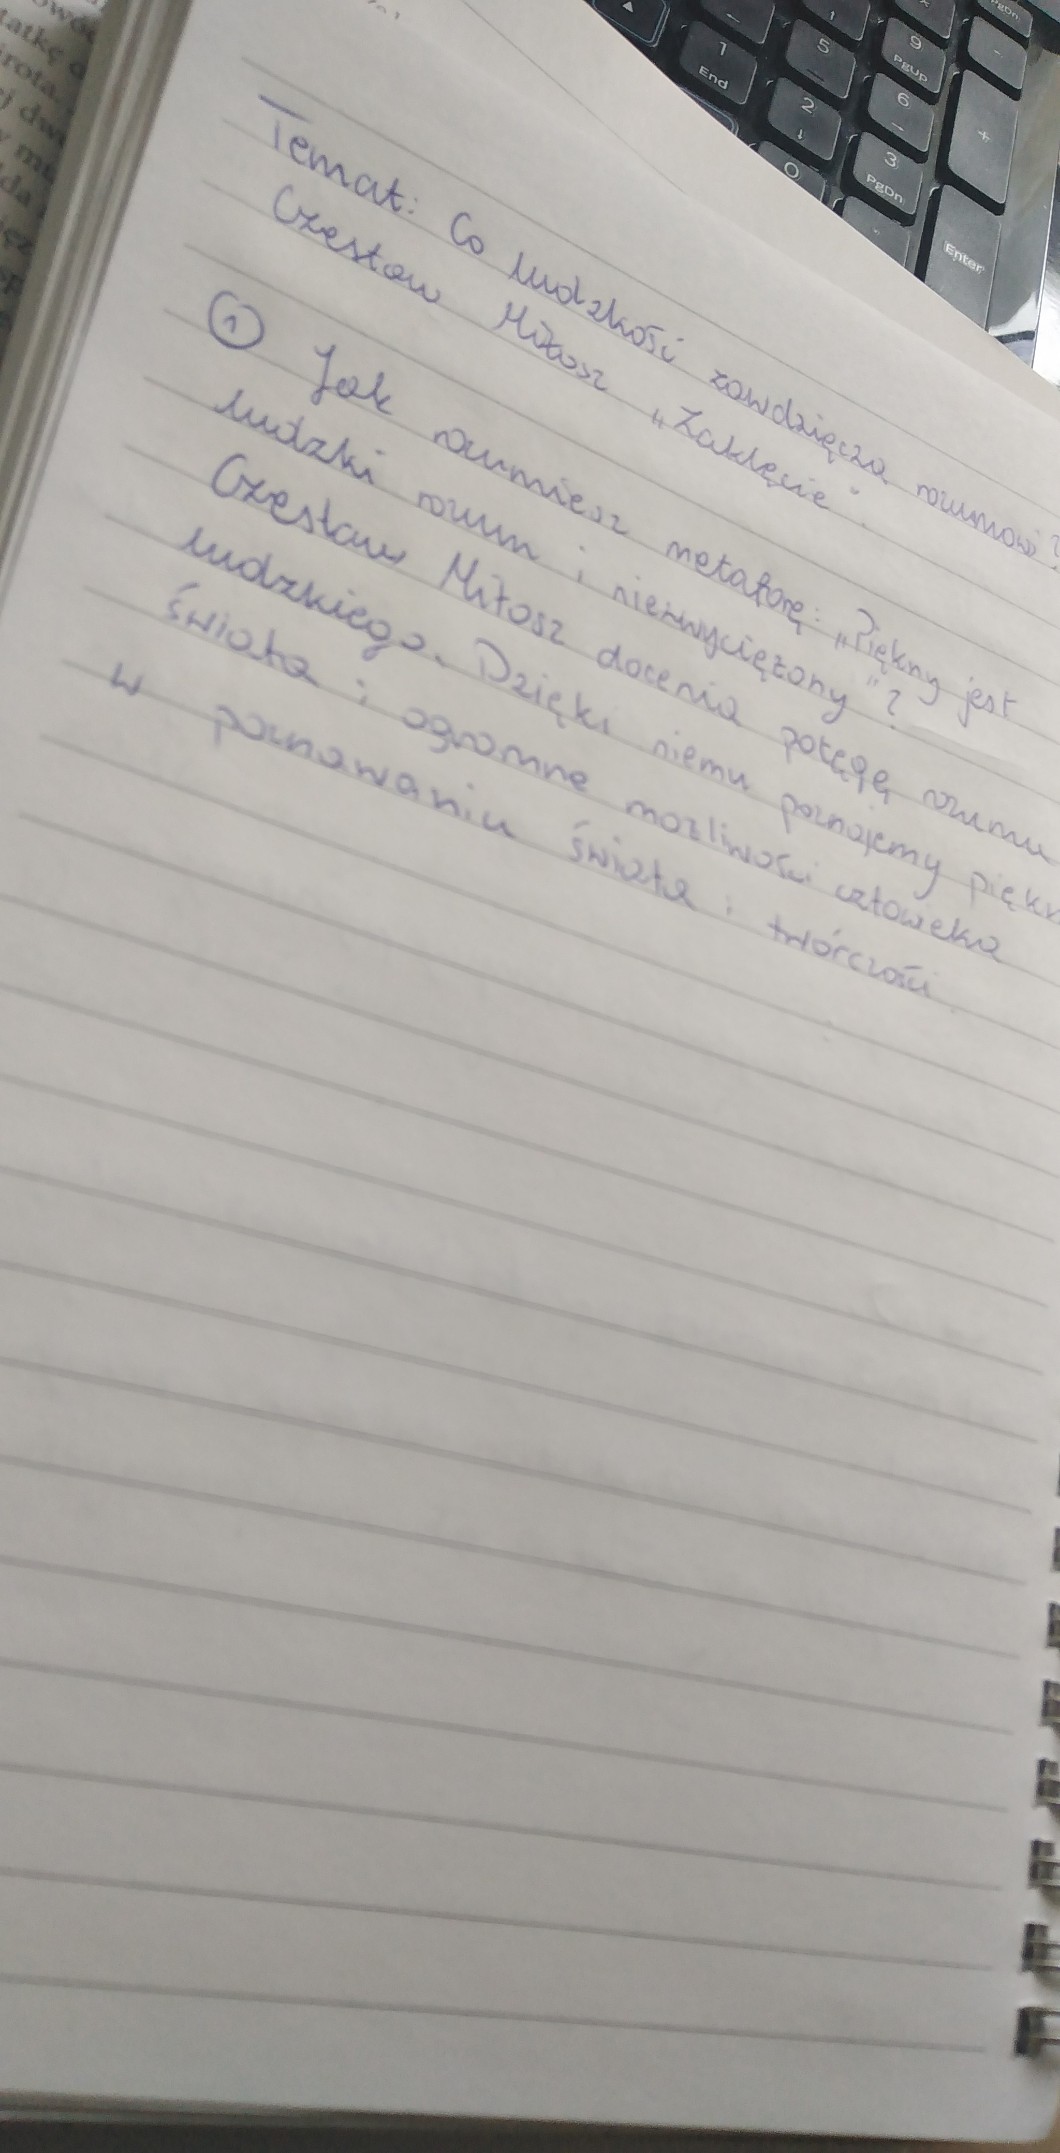 Temat: Co ludzkość zawdzięcza rozumowi?
Czesław Miłosz „Zaklęcie".
① Jak rozumiesz metaforę: „Piękny jest
ludzki rozum i niezwyciężony"?
Czesław Miłosz docenia potęgę rozumu
ludzkiego. Dzięki niemu poznajemy
świata i ogromne możliwości człowieka
w poznawaniu świata i twórczości
1
End
2
3
PgDn
5
6
9
PgUp
0
+
-
Enter
PgDn